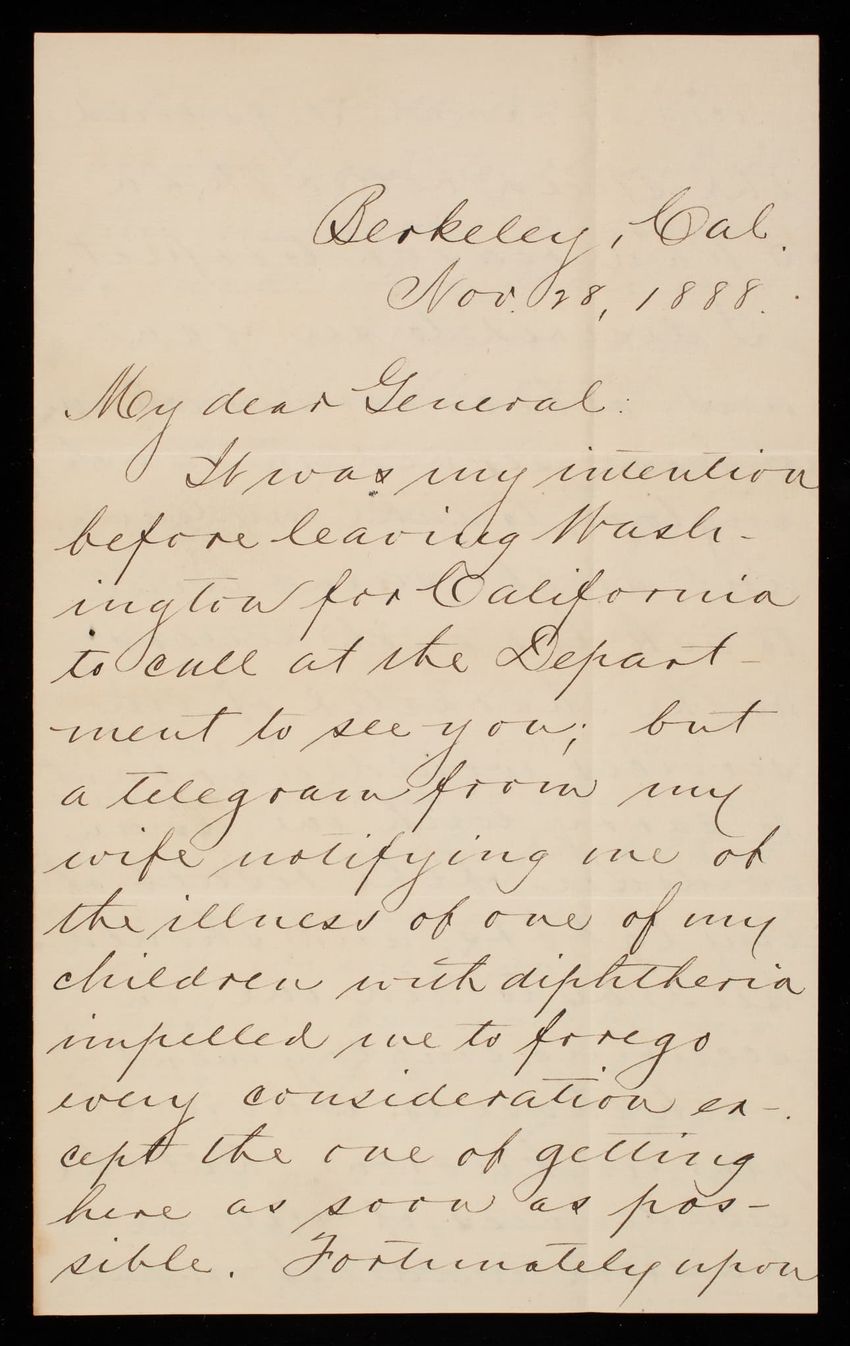 Berkeley, Cal.
Nov. 28, 1888.
My dear General:
It was my intention
before leaving Wash-
ington for California
to call at the Depart-
ment to see you; but
a telegram from my
wife notifying me of
the illness of one of my
children with diphtheria
impelled me to forego
every consideration ex-
cept the one of getting
here as soon as pos-
sible. Fortunately upon